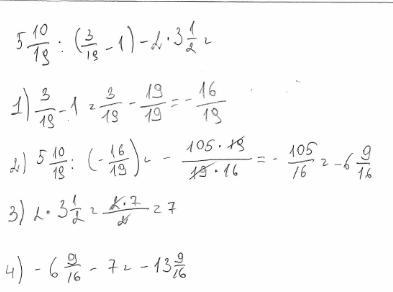 5 10/19 : (3/19 - 1) - 2 · 3 1/2 =
1) 3/19 - 1 = 3/19 - 19/19 = - 16/19
2) 5 10/19 : (- 16/19) = - 105 · 19/19 · 16 = - 105/16 = - 6 9/16
3) 2 · 3 1/2 = 2 · 7/2 = 7
4) - 6 9/16 - 7 = - 13 9/16